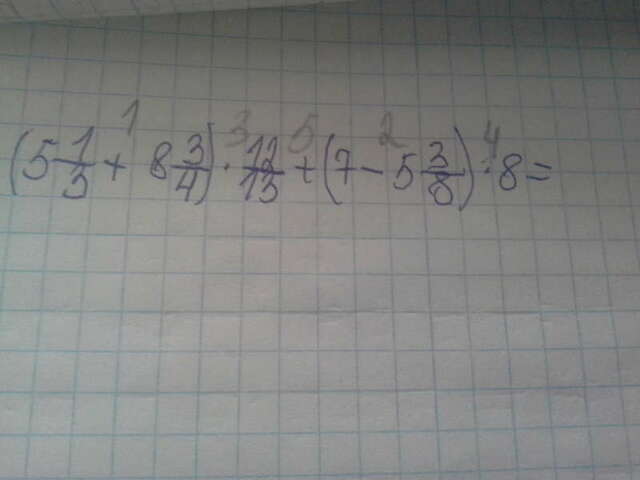 1 3 5 2 4
(5 1/3 + 8 3/4) · 12/13 + (7 - 5 3/8) : 8 =